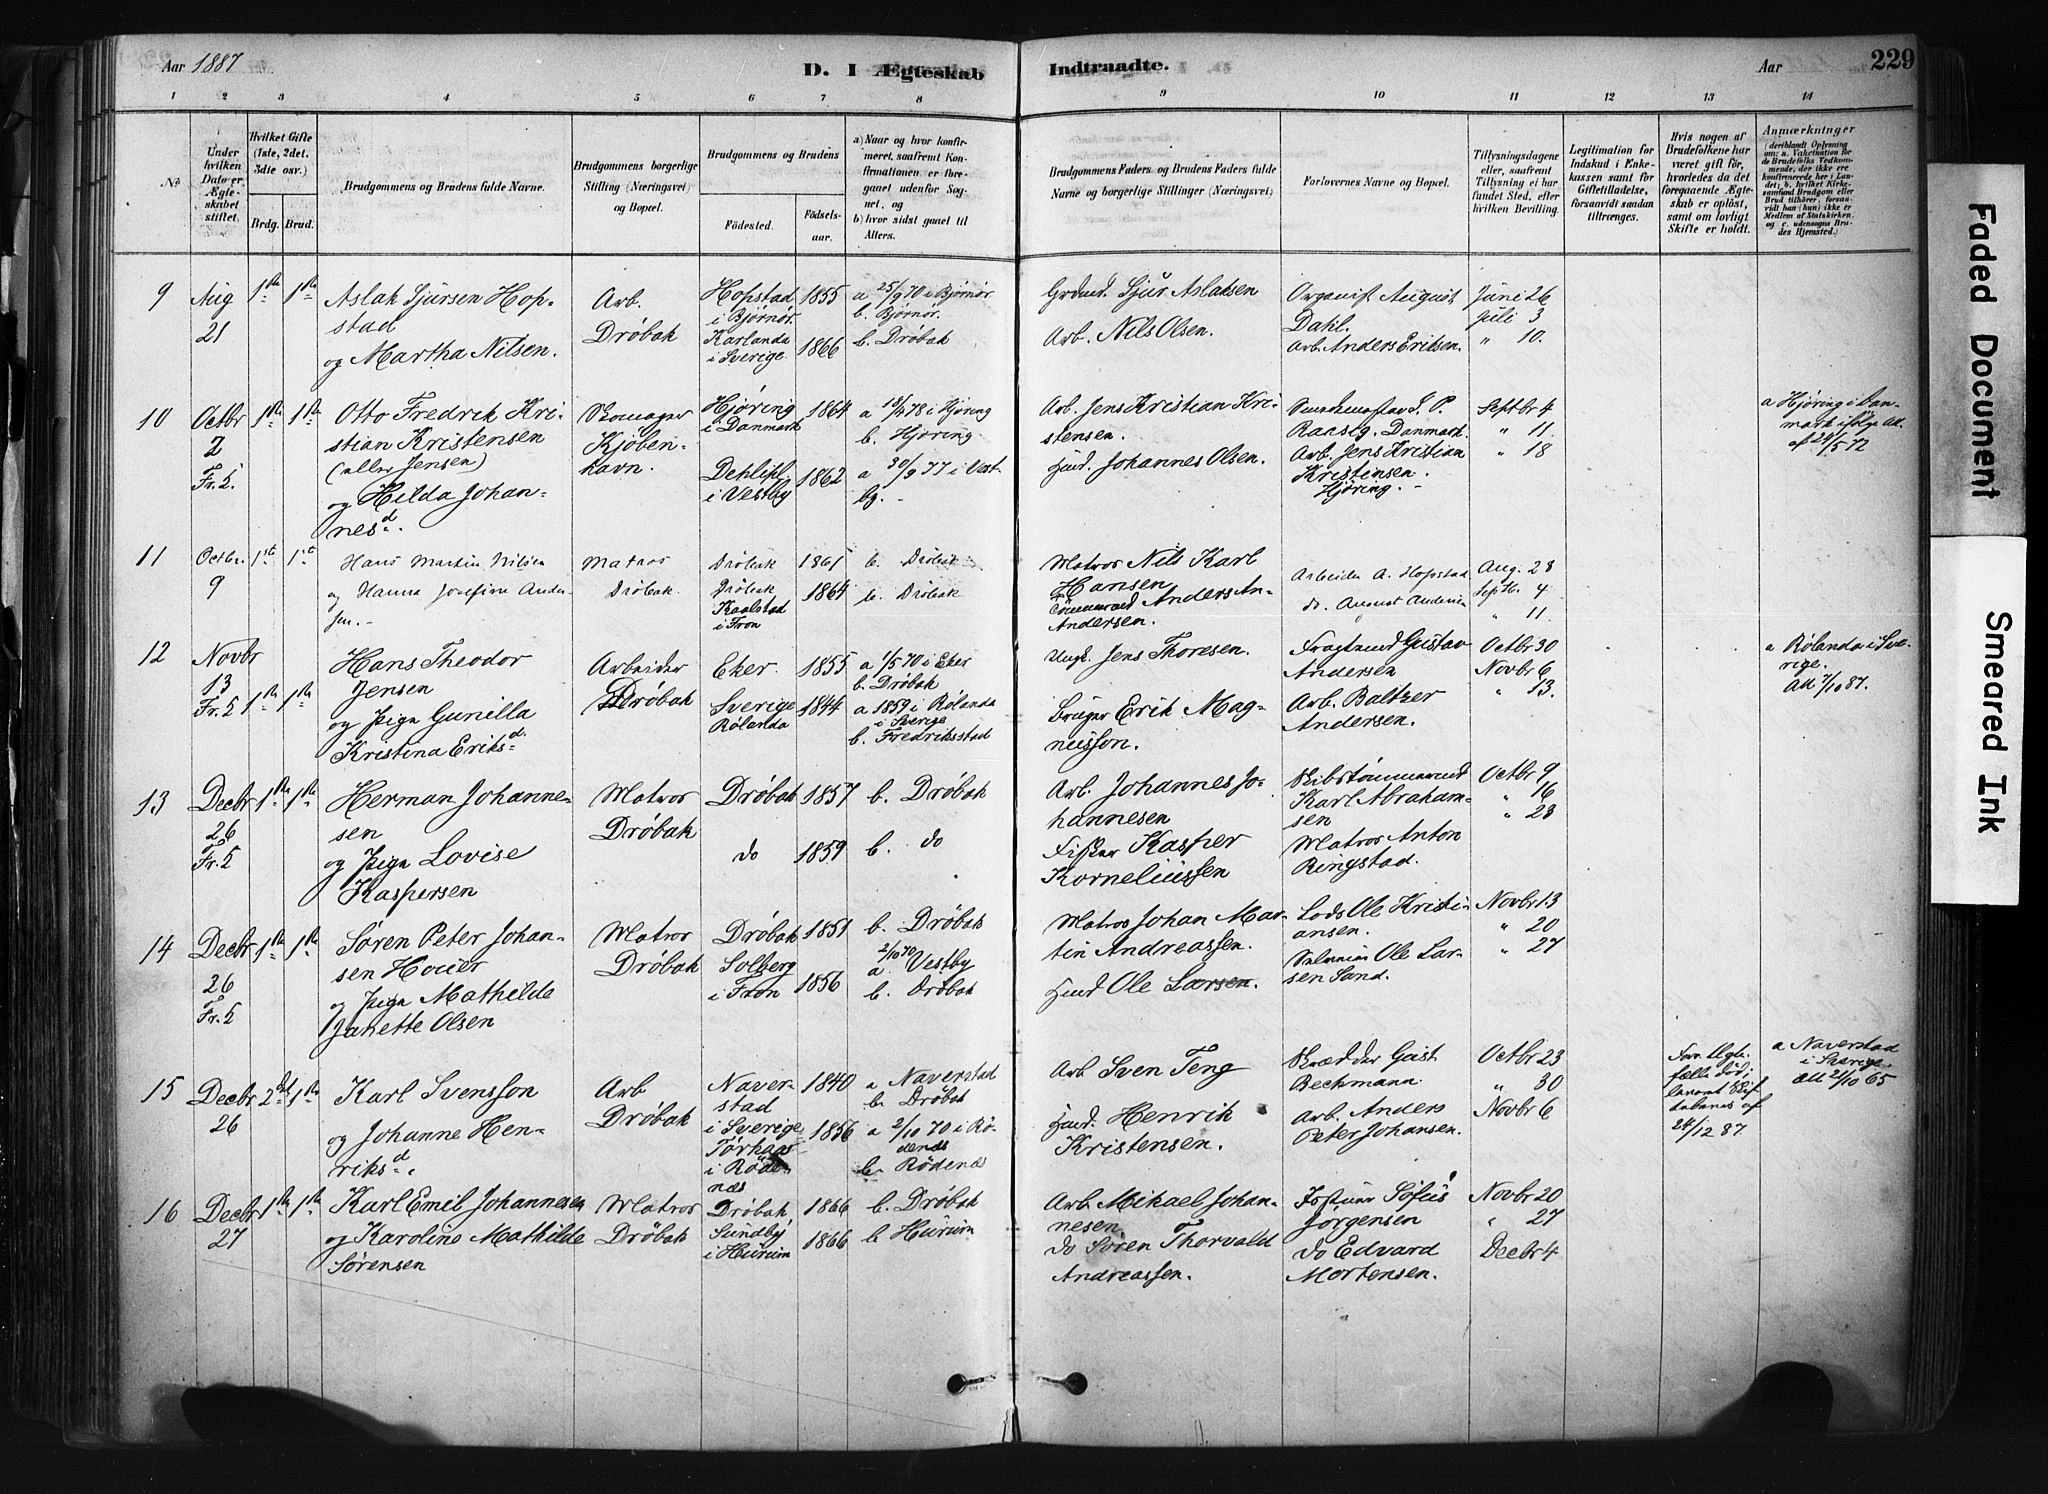 Aar 1887
D. I Ægteskab
Indtraadte.
Aar
229
1 2 3 4 5 6 7 8 9 10 11 12 13 14
No
Under hvilken Dato er Ægteskabet stiftet.
Hvilket Gifte (1ste, 2det, 3die osv.)
Brdg. Brud.
Brudgommens og Brudens fulde Navne.
Brudgommens borgerlige Stilling (Næringsvei) og Bopæl.
Brudgommens og Brudens
Fødested.
Fødselsaar.
a) Naar og hvor konfirmeret, saafremt Konfirmationen er foregaaet udenfor Sognet, og
b) hvor sidst gaaet til Alters.
Brudgommens Faders og Brudens Faders fulde Navne og borgerlige Stillinger (Næringsvei)
Forlovernes Navne og Bopæl.
Tillysningsdagene eller, saafremt Tillysning ei har fundet Sted, efter hvilken Bevilling.
Legitimation for Indskud i Enkekassen samt for Giftetilladelse, forsaavidt saadan tiltrænges.
Hvis nogen af Brudefolkene har været gift før, hvorledes da det foregaaende Ægteskab er opløst, samt om lovligt Skifte er holdt.
Anmærkninger (deriblandt Oplysning om: a. Vakcination for de Brudefolks Vedkommende, der ikke ere konfirmerede her i Landet; b. hvilket Kirkesamfund Brudgom eller Brud tilhører, forsaavidt han (hun) ikke er Medlem af Statskirken, og c. udensogns Brudes Hjemsted.)
9 Aug 21 1ste 1ste
Aslak Sjursen Hopstad
og Martha Nilsen.
Arb. Drøbak
Hopstad i Bjørnør. 1855
Karlanda i Sverige 1866
a 25/9 70 i Bjørnør
b. Bjørnør.
b. Drøbak
Grdmd. Sjur Aslaksen
Arb. Nils Olsen.
Organist August Dahl.
Arb. Anders Eriksen.
Juni 26
Juli 3
" 10.
10 Octbr 2 Fr. 5. 1ste 1ste
Otto Fredrik Kristian Kristensen
(eller Jensen)
og Hilda Johannesd.
Skomager Kjøbenhavn.
Hjøring i Danmark 1864
i Vestby 1862
a 78 i Hjøring
b. Hjøring
a 30/9 77 i Vestby. -
Arb. Jens Kristian Kristensen.
Husd. Johannes Olsen.
Danmark.
Arb. Jens Kristian Kristensen. Hjøring. -
Septbr 4
" 11
" 18
a Hjøring i Danmark ifølge Att. af 24/5 72
11 Octbr. 9 1ste 1ste
Hans Martin Nilsen
og Hanna Josefine Andersen. -
Matros Drøbak.
Drøbak 1861
Drøbak 1864
Kaalstad i Fron
b. Drøbak
b. Drøbak
Matros Nils Karl Hansen
Tømmermd Anders An-
Andersen.
Arbeider A. Hopstad
do. August Andersen
Aug. 28
Septb. 4
" 11
12 Novbr 13 Fr. 5 1ste 1ste
Hans Theodor Jensen
og Pige Gunilla Kristina Eriksd.
Arbeider Drøbak
Eker. 1855
Sverige Rølanda 1844
a 1/5 70 i Eker
b. Drøbak
a 1859 i Rølanda i Sverige
b. Fredriksstad
Ungk. Jens Thoresen.
Bruger Erik Magnusson.
Fragtmd Gustav Andersen
Arb. Baltzer Andersen.
Octbr 30
Novbr 6
" 13.
a Rølanda i Sverige.
Att 7/10 87.
13 Decbr 26 Fr. 5 1ste 1ste
Herman Johannesen
og Pige Lovise Kaspersen
Matros Drøbak
Drøbak 1857
do 1859
b. Drøbak
b. do
Arb. Johannes Johannesen
Fisker Kasper Korneliussen
Skibstømmermd Karl Abrahamsen
Matros Anton Ringstad.
Octbr 9
" 16
" 23
14 Decbr 26 Fr. 5 1ste 1ste
Søren Peter Johansen Houer
og Pige Mathilde Janette Olsen
Matros Drøbak
Drøbak 1851
Solberg i Fron 1856
b. Drøbak
2/10 70
a. Vestby
b. Drøbak
Matros Johan Martin Andreassen.
Husd Ole Larsen.
Lods Ole Kristiansen.
Ole Larsen Sand.
Novbr 13
" 20
" 27
15 Decbr 26 2det 1ste
Karl Svensson
og Johanne Henriksd.
Arb Drøbak
Naverstad i Sverige 1840
Tørhaug i Rødenæs 1856
a Naverstad
b. Drøbak
a 2/10 70 i Rødenæs
b. Rødenæs
Arb Sven Teng
Husd. Henrik Kristensen.
Skrædder Gust Beckmann.
Arb. Anders Peter Johansen.
Octbr 23
" 30
Novbr 6
Forr. Ægtefælle død; 24/12 87.
a Naverstad i Sverige. Att 21/10 65
16 Decbr 27 1ste 1ste
Karl Emil Johannesen
og Karoline Mathilde Sørensen
Matros Drøbak
Drøbak 1866
Sundby i Hurum 1866
b. Drøbak
b Hurum
Arb. Mikael Johannesen
do Søren Thorvald Andreassen.
Sofus Jørgensen
do Edvard Mortensen.
Novbr 20
" 27
Decbr 4
Faded Document
Smeared Ink